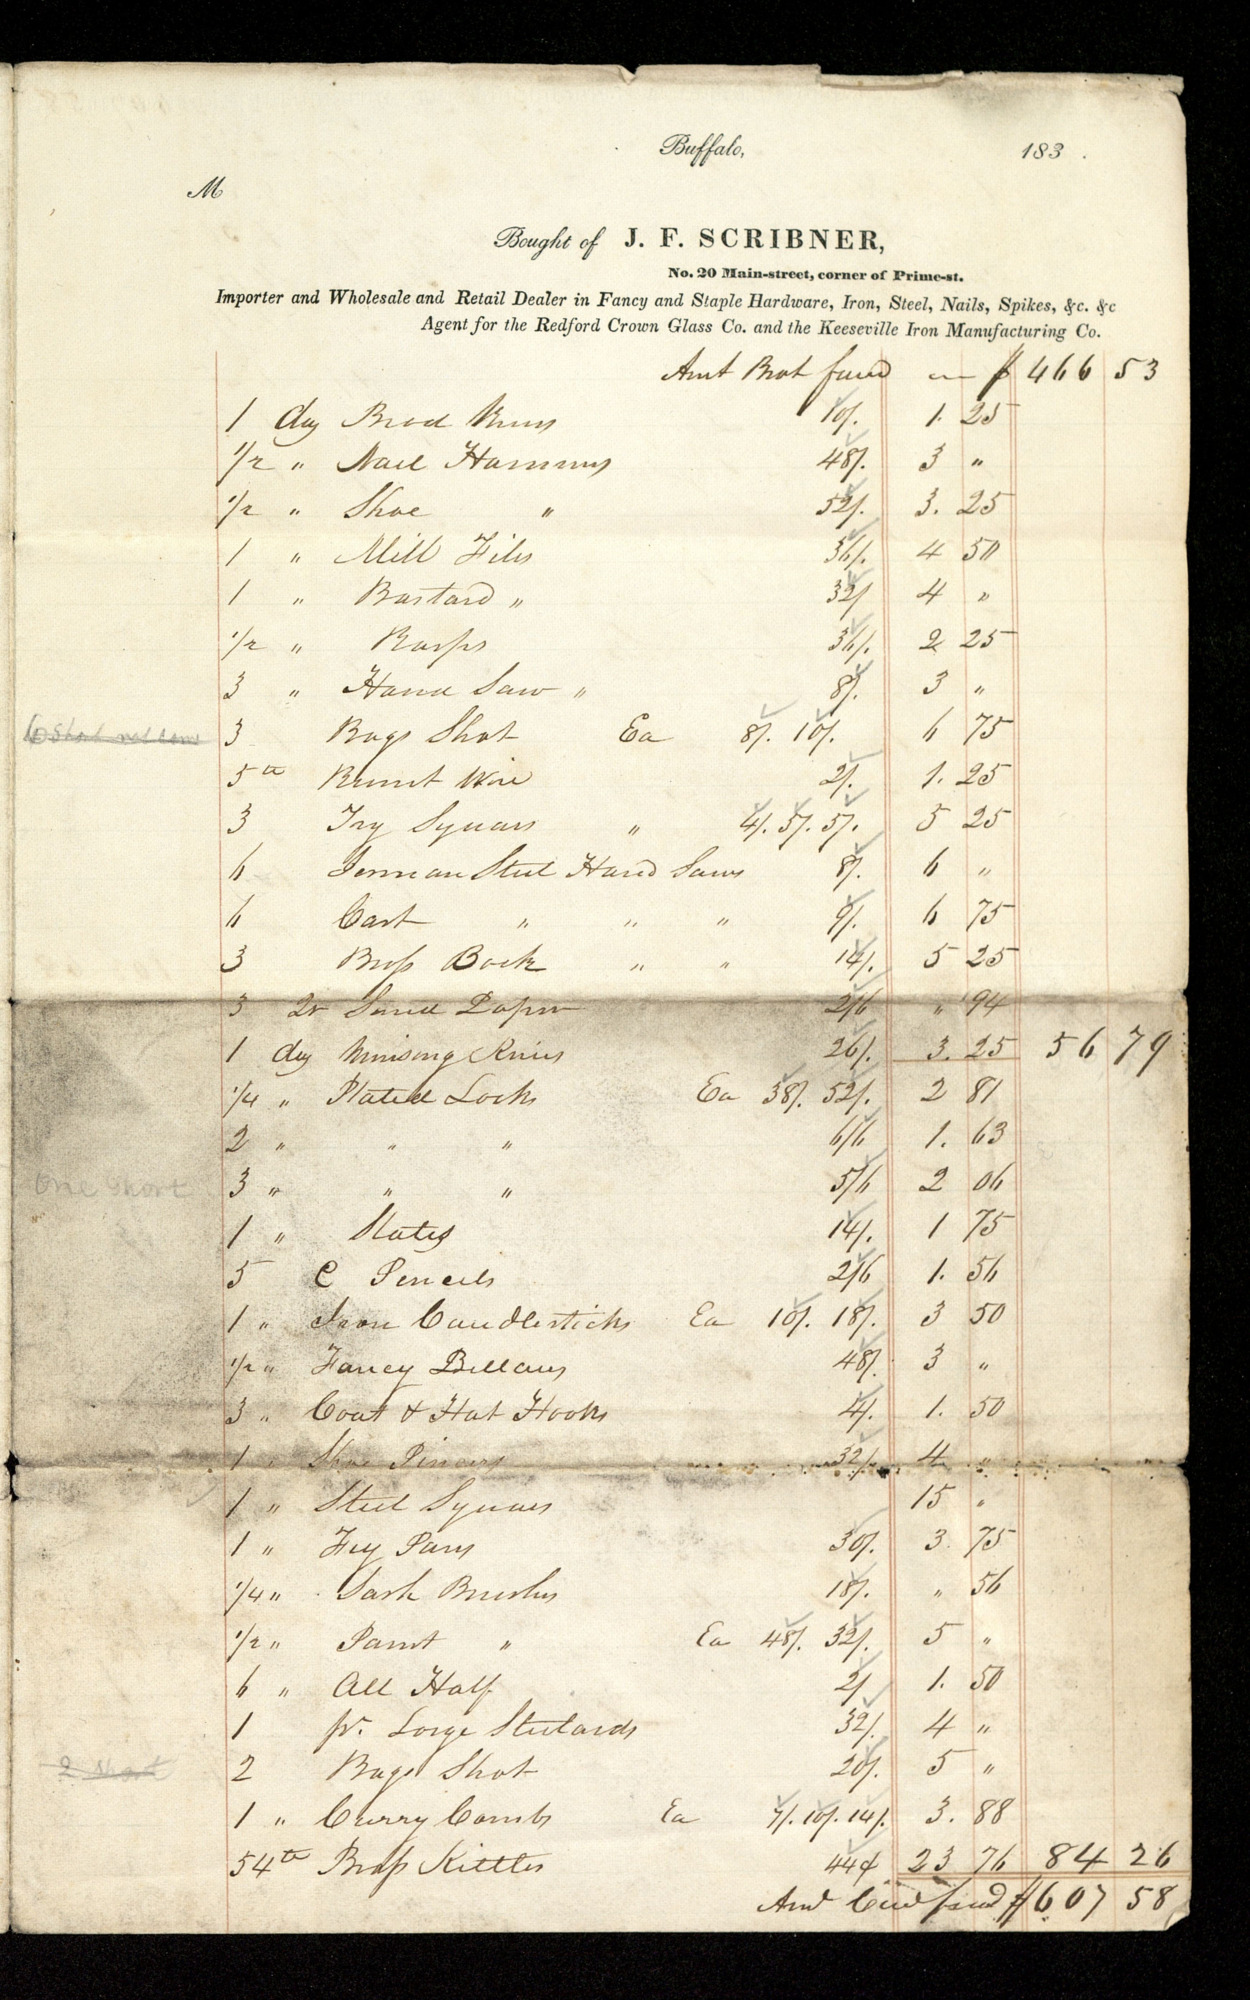 Buffalo, 183 .
M
Bought of J. F. SCRIBNER,
No. 20 Main-street, corner of Prime-st.
Importer and Wholesale and Retail Dealer in Fancy and Staple Hardware, Iron, Steel, Nails, Spikes, &c. &c
Agent for the Redford Crown Glass Co. and the Keeseville Iron Manufacturing Co.
Amt Brot forwd $ 466 53
1 doz Brad 10/. 1. 25
1/2 " Nail Hammers 48/. 3 "
1/2 " Shoe " 52/. 3. 25
1 " Mill Files 36/. 4 50
1 " Bastard " 32/ 4 "
1/2 " Rasps 36/. 2 25
3 " Hand Saw " 8/. 3 "
3 Bags Shot Ea 8/. 10/. 6 75
5 lb Wire 2/. 1. 25
3 Try Squares " 4/. 5/. 5/. 5 25
6 German Steel Hand Saws 8/. 6 "
6 Cast " " " 9/. 6 75
3 Brass Back " " 14/. 5 25
3 Qr Sand Paper 2/6 " 94
1 doz Knives 26/. 3. 25 56 79
1/4 " Plated Locks Ea 38/. 52/. 2 81
2 " " " 6/6 1. 63
3 " " " 5/6 2 06
One Short
1 " Slates 14/. 1 75
5 C Pencils 2/6 1. 56
1 " Iron Candlesticks Ea 10/. 18/. 3 50
1/2 " Fancy Bellows 48/. 3 "
3 " Coat & Hat Hooks 4/. 1. 50
1 " Shoe Pincers 32/. 4 "
1 " Steel Squares 15 "
1 " Fry Pans 30/. 3. 75
1/4 " Sash Brushes 18/. " 56
1/2 " Paint " Ea 48/. 32/. 5 "
6 " All Haft 2/ 1. 50
1 pr. Large Steelards 32/. 4 "
2 Short
2 Bags Shot 20/. 5 "
1 " Curry Combs Ea 7/. 10/. 14/. 3. 88
54 lb Brass Kittles 44¢ 23 76 84 26
Amt Card forwd $607 58